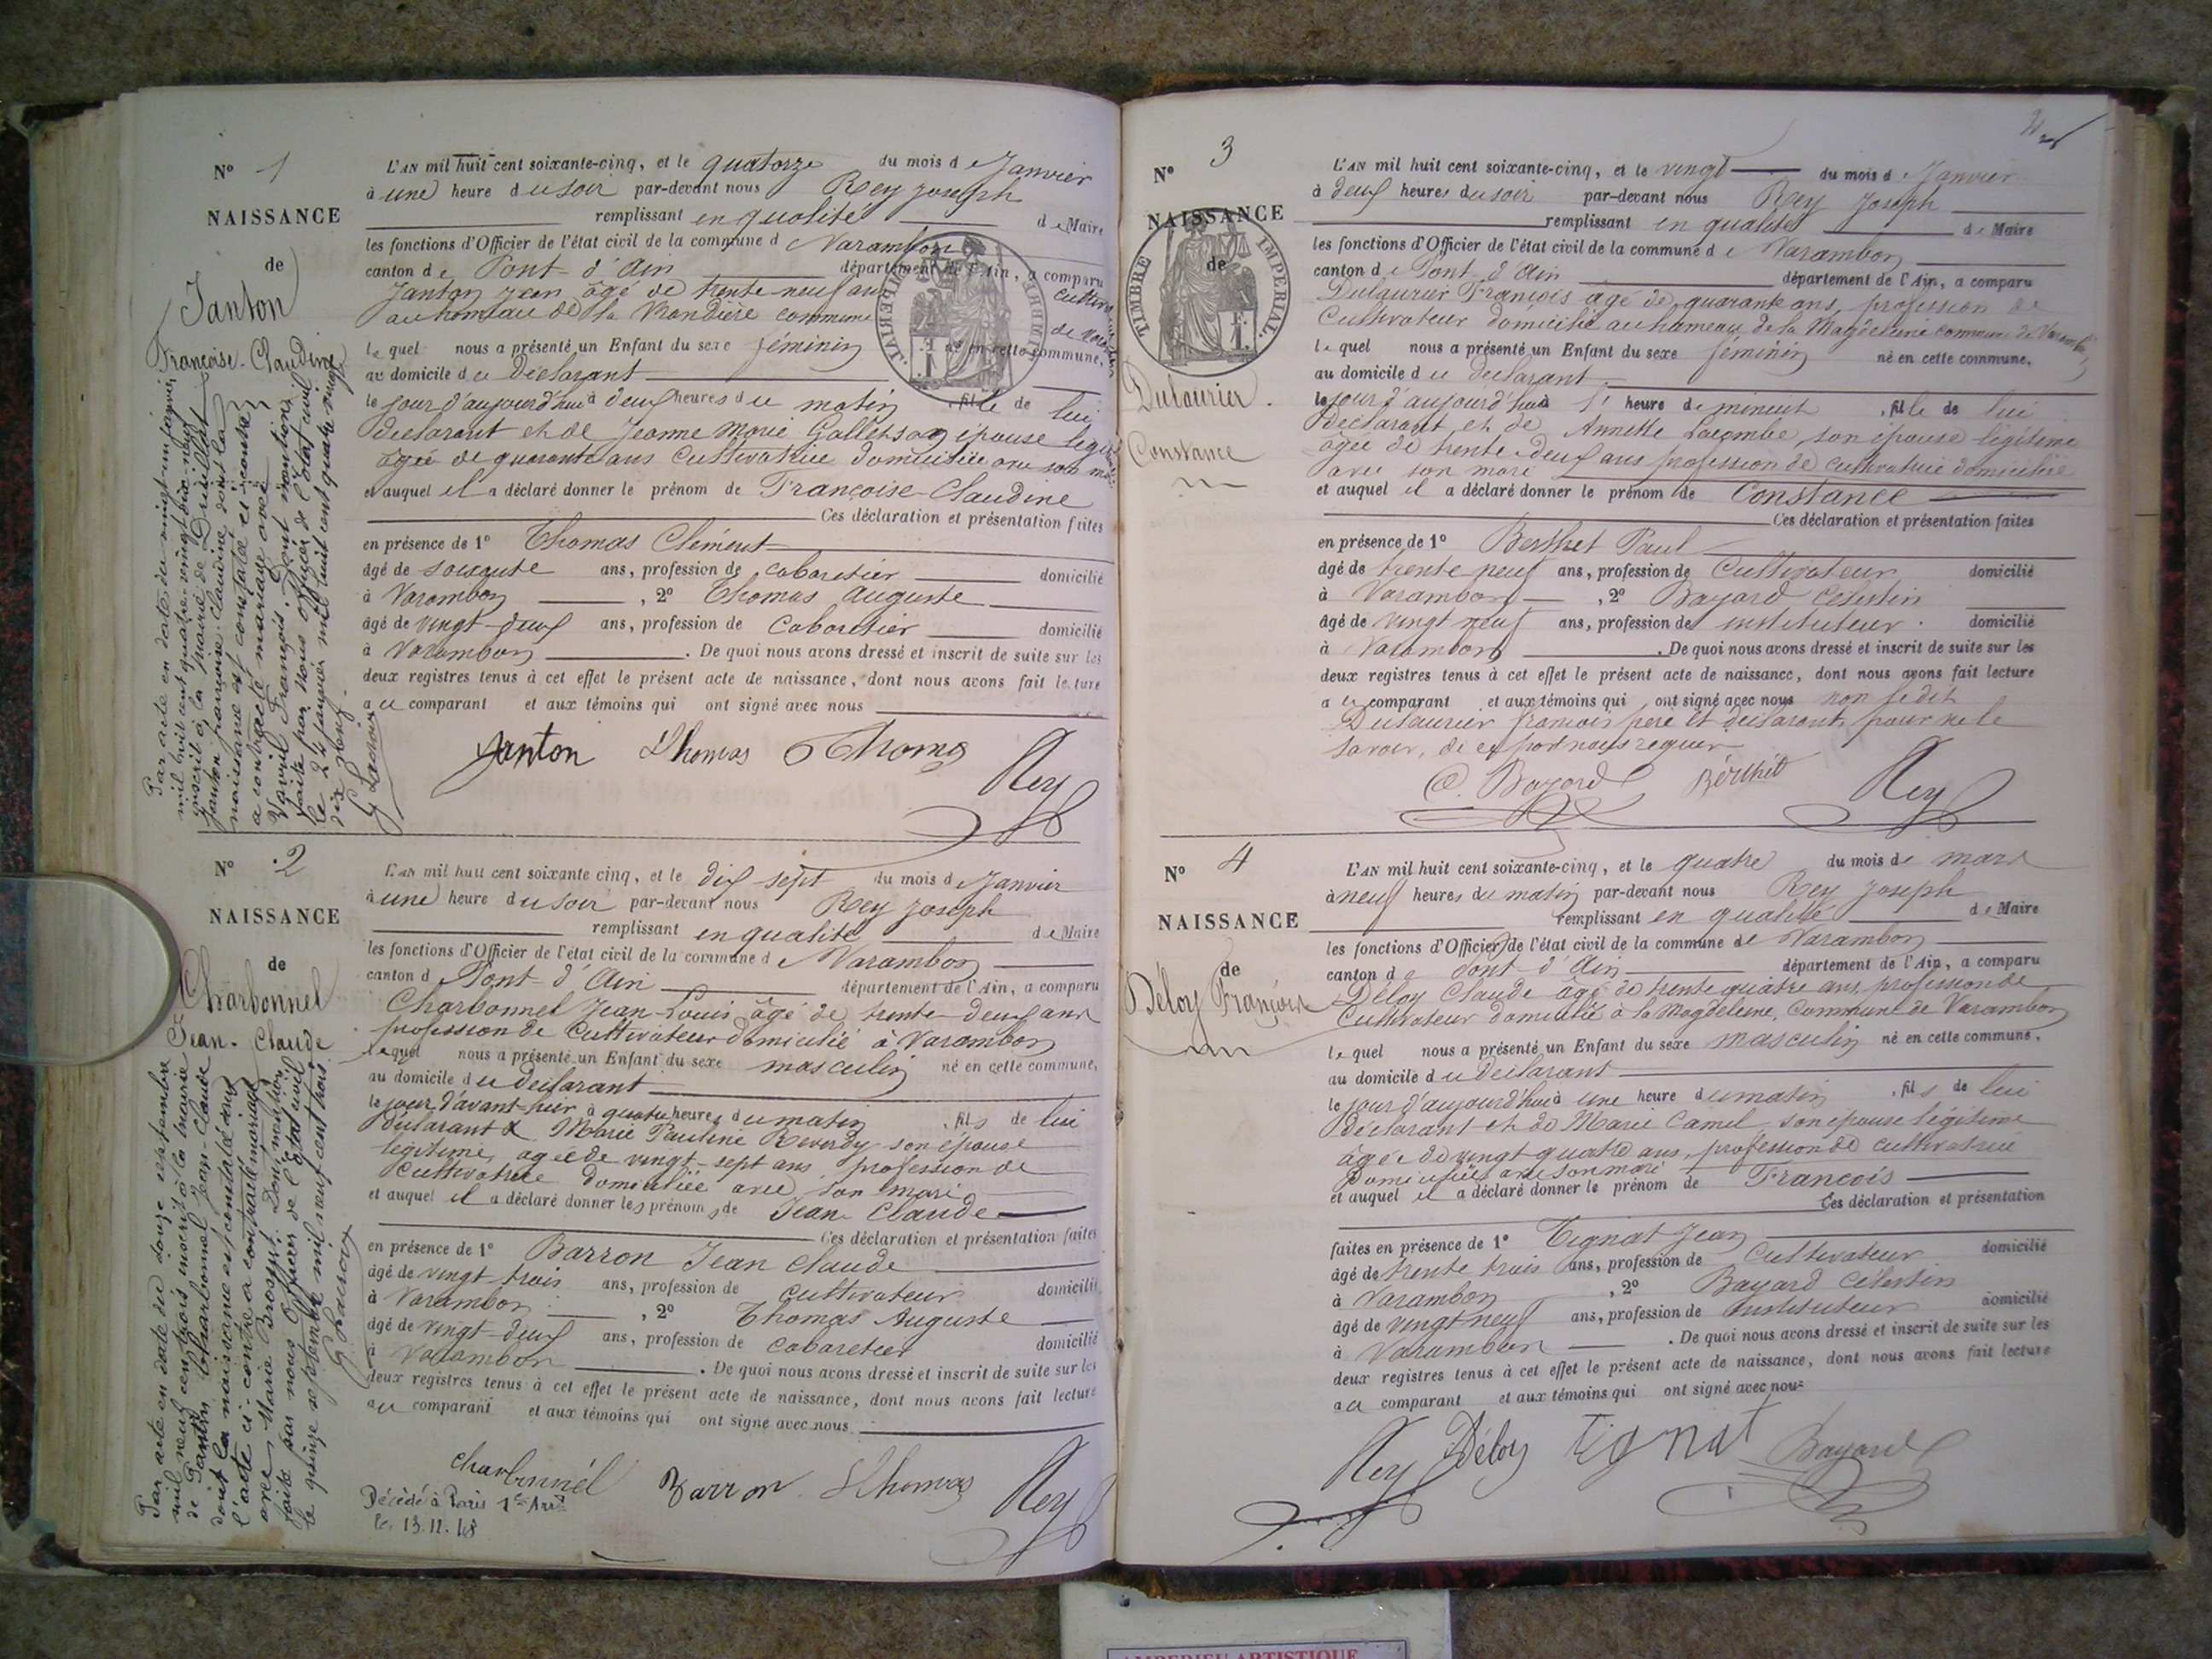 N° 1
NAISSANCE
de
Janton
Françoise-Claudine
Par acte en date du vingt-un janvier
mil huit cent quatre-vingt-dix-neuf
inscrit à la mairie de Druillat
Janton Françoise Claudine dont la
naissance est constatée ci-contre
a contracté mariage avec
François. Dont mention
faite par nous officier de l'état civil
le 24 janvier mil huit cent quatre-vingt
dix-neuf.
L'AN mil huit cent soixante-cinq, et le quatorze du mois de Janvier
à une heure du soir par-devant nous Rey Joseph
remplissant en qualité de Maire
les fonctions d'Officier de l'état civil de la commune de Varambon
canton de Pont-d'Ain département de l'Ain, a comparu
Janton Jean âgé de trente-neuf ans cultivateur
au hameau de la commune de
lequel nous a présenté un Enfant du sexe féminin né en cette commune.
au domicile du déclarant
le jour d'aujourd'hui à deux heures du matin, fille de lui
déclarant et de Jeanne Marie Gallet son épouse
âgée de quarante ans cultivatrice domiciliée avec son
et auquel il a déclaré donner le prénom de Françoise-Claudine
Ces déclaration et présentation faites
en présence de 1° Thomas Clément
âgé de soixante ans, profession de cabaretier domicilié
à Varambon, 2° Thomas Auguste
âgé de vingt-deux ans, profession de Cabaretier domicilié
à Varambon. De quoi nous avons dressé et inscrit de suite sur les
deux registres tenus à cet effet le présent acte de naissance, dont nous avons fait lecture
au comparant et aux témoins qui ont signé avec nous
Janton Thomas Thomas Rey
N° 2
NAISSANCE
de
Charbonnel
Jean-Claude
Par acte en date du douze septembre
mil neuf cent trois inscrit à la mairie
de Pantin Charbonnel Jean-Claude
dont la naissance est constatée dans
l'acte ci-contre a contracté mariage
avec Marie Dont mention
faite par nous Officier de l'état civil
le quinze septembre mil neuf cent trois
L'AN mil huit cent soixante cinq, et le dix sept du mois de Janvier
à une heure du soir par-devant nous Rey Joseph
remplissant en qualité de Maire
les fonctions d'Officier de l'état civil de la commune de Varambon
canton de Pont-d'Ain département de l'Ain, a comparu
Charbonnel Jean-Louis âgé de trente-deux ans
profession de Cultivateur domicilié à Varambon
lequel nous a présenté un Enfant du sexe masculin né en cette commune,
au domicile du déclarant
le jour d'avant-hier à quatre heures du matin, fils de lui
déclarant & Marie Pauline Reverdy son épouse
légitime, agée de vingt-sept ans profession de
Cultivatrice domiciliée avec son mari
et auquel il a déclaré donner les prénoms de Jean Claude
Ces déclaration et présentation faites
en présence de 1° Barron Jean Claude
âgé de vingt trois ans, profession de cultivateur domicilié
à Varambon, 2° Thomas Auguste
âgé de vingt-deux ans, profession de cabaretier domicilié
à Varambon. De quoi nous avons dressé et inscrit de suite sur les
deux registres tenus à cet effet le présent acte de naissance, dont nous avons fait lecture
au comparant et aux témoins qui ont signé avec nous
Charbonnél Barron Thomas Rey
Décédé à Paris 1er Arrt
le 13.11.48
N° 3
NAISSANCE
de
TIMBRE IMPERIAL
Dulaurier
Constance
L'AN mil huit cent soixante-cinq, et le vingt du mois de Janvier
à deux heures du soir par-devant nous Rey Joseph
remplissant en qualité de Maire
les fonctions d'Officier de l'état civil de la commune de Varambon
canton de Pont-d'Ain département de l'Ain, a comparu
Dulaurier François âgé de quarante ans, profession de
Cultivateur domicilié au hameau de la Magdeleine commune de Varambon
lequel nous a présenté un Enfant du sexe féminin né en cette commune.
au domicile du déclarant
le jour d'aujourd'hui à heure de minuit, fille de lui
déclarant et de Annette Lacombe, son épouse légitime
agée de trente-deux ans profession de cultivatrice domiciliée
avec son mari
et auquel il a déclaré donner le prénom de Constance
Ces déclaration et présentation faites
en présence de 1° Berthet Paul
âgé de trente-neuf ans, profession de Cultivateur domicilié
à Varambon, 2° Bayard Célestin
âgé de vingt neuf ans, profession de instituteur. domicilié
à Varambon. De quoi nous avons dressé et inscrit de suite sur les
deux registres tenus à cet effet le présent acte de naissance, dont nous avons fait lecture
au comparant et aux témoins qui ont signé avec nous non ledit
Dulaurier françois père et déclarant, pour ne le
savoir, de ce par nous requis
C. Bayard Berthet Rey
N° 4
NAISSANCE
de
Déloy François
L'AN mil huit cent soixante-cinq, et le quatre du mois de mars
à neuf heures du matin par-devant nous Rey Joseph
remplissant en qualité de Maire
les fonctions d'Officier de l'état civil de la commune de Varambon
canton de Pont-d'Ain département de l'Ain, a comparu
Déloy Claude âgé de trente quatre ans, profession de
Cultivateur domicilié à la Magdeleine, Commune de Varambon
lequel nous a présenté un Enfant du sexe masculin né en cette commune.
au domicile du déclarant
le jour d'aujourd'hui à une heure du matin, fils de lui
déclarant et de Marie Camel, son épouse légitime
âgée de vingt quatre ans, profession de cultivatrice
Domiciliée avec son mari
et auquel il a déclaré donner le prénom de François
Ces déclaration et présentation
faites en présence de 1° Tignat Jean
âgé de trente trois ans, profession de Cultivateur domicilié
à Varambon, 2° Bayard Célestin
âgé de vingt neuf ans, profession de Instituteur domicilié
à Varambon. De quoi nous avons dressé et inscrit de suite sur les
deux registres tenus à cet effet le présent acte de naissance, dont nous avons fait lecture
au comparant et aux témoins qui ont signé avec nous
Rey Déloy Tignat Bayard